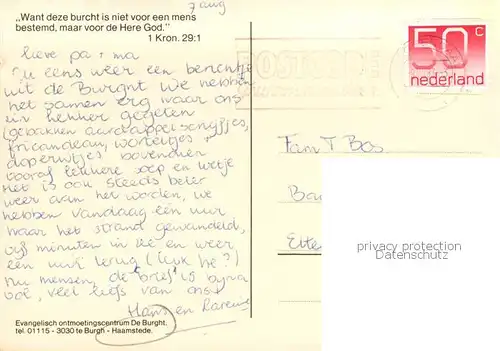 7 aug
„Want deze burcht is niet voor een mens
bestemd, maar voor de Here God."
1 Kron. 29:1
lieve pa + ma
nu eens weer een berichtje
uit de Burght We hebben
het samen erg naar ons
zin lekker gegeten
(gebakken aardappelschijfjes,
fricandeau, worteltjes +
doperwtjes bovendien
vooraf lekkere soep en
Het is ook steeds beter
weer aan het worden, we
hebben vandaag een uur
naar het strand gewandeld,
vijf minuten in zee en weer
een uur terug (leuk he?)
nu mensen, de brief is bijna
vol, veel liefs van ons
Hans en
Evangelisch ontmoetingscentrum De Burght.
tel. 01115 - 3030 te Burgh - Haamstede.
50 c
nederland
POSTCODE
Fam T Bos
Ba
Ette
privacy protection
Datenschutz